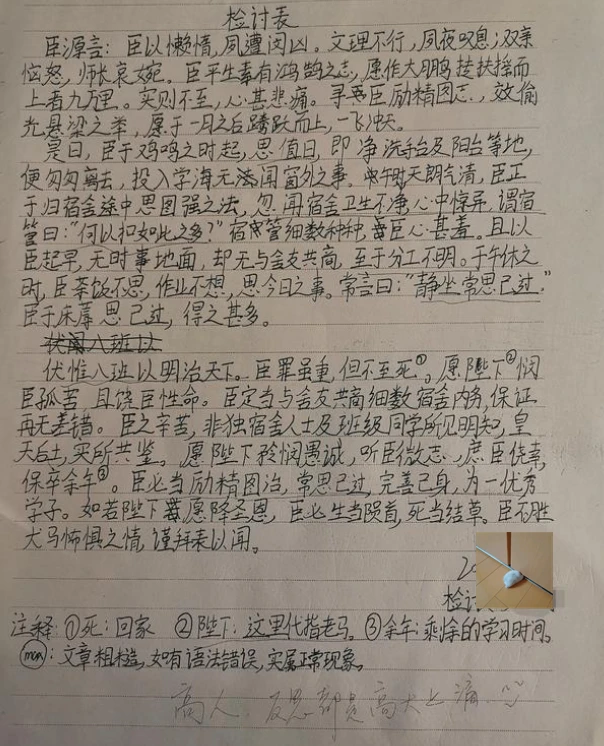 检讨表
臣源言：臣以懒惰，夙遭闵凶。文理不行，夙夜叹息；双亲
恼怒，师长哀婉。臣平生素有鸿鹄之志，愿作大鹏搓扶摇而
上者九万里。实则不至，心甚悲痛。寻臣励精图志，效偷
光悬梁之举，愿于一月之后踌跃而上，一飞冲天。
是日，臣于鸡鸣之时起，思值日，即净洗手台及阳台等地，
便匆匆离去，投入学海无法闻窗外之事。中午时天朗气清，臣正
于归宿舍途中思图强之法，忽闻宿舍卫生不净，心中悼异，谓宿
管曰："何以扣如此之多？"宿管细数种种，臣心甚羞。且以
臣起早，无时事地面，却无与舍友共商，至于分工不明。于午休之
时，臣茶饭不思，作业不想，思今日之事。常言曰："静坐常思己过。"
臣于床蓐思己过，得之甚多。
伏惟八班以明治天下。臣罪虽重，但不至死①。愿陛下②悯
臣孤苦且饶臣性命。臣定当与舍友共商细数宿舍内务，保证
再无差错。臣之辛苦，非独宿舍人士及班级同学所见明知，皇
天后土，实所共鉴。愿陛下矜悯愚诚，听臣微志，庶臣侥幸，
保卒余年③。臣必当励精图治，常思己过，完善己身，为一优秀
学子。如若陛下愿降圣恩，臣必生当陨首，死当结草。臣不胜
犬马怖惧之情，谨拜表以闻。
20
检讨
注释：①死：回家 ②陛下：这里代指老马。③余年：剩余的学习时间。
man：文章粗糙，如有语法错误，实属正常现象。
高人，反思都是高大上滴